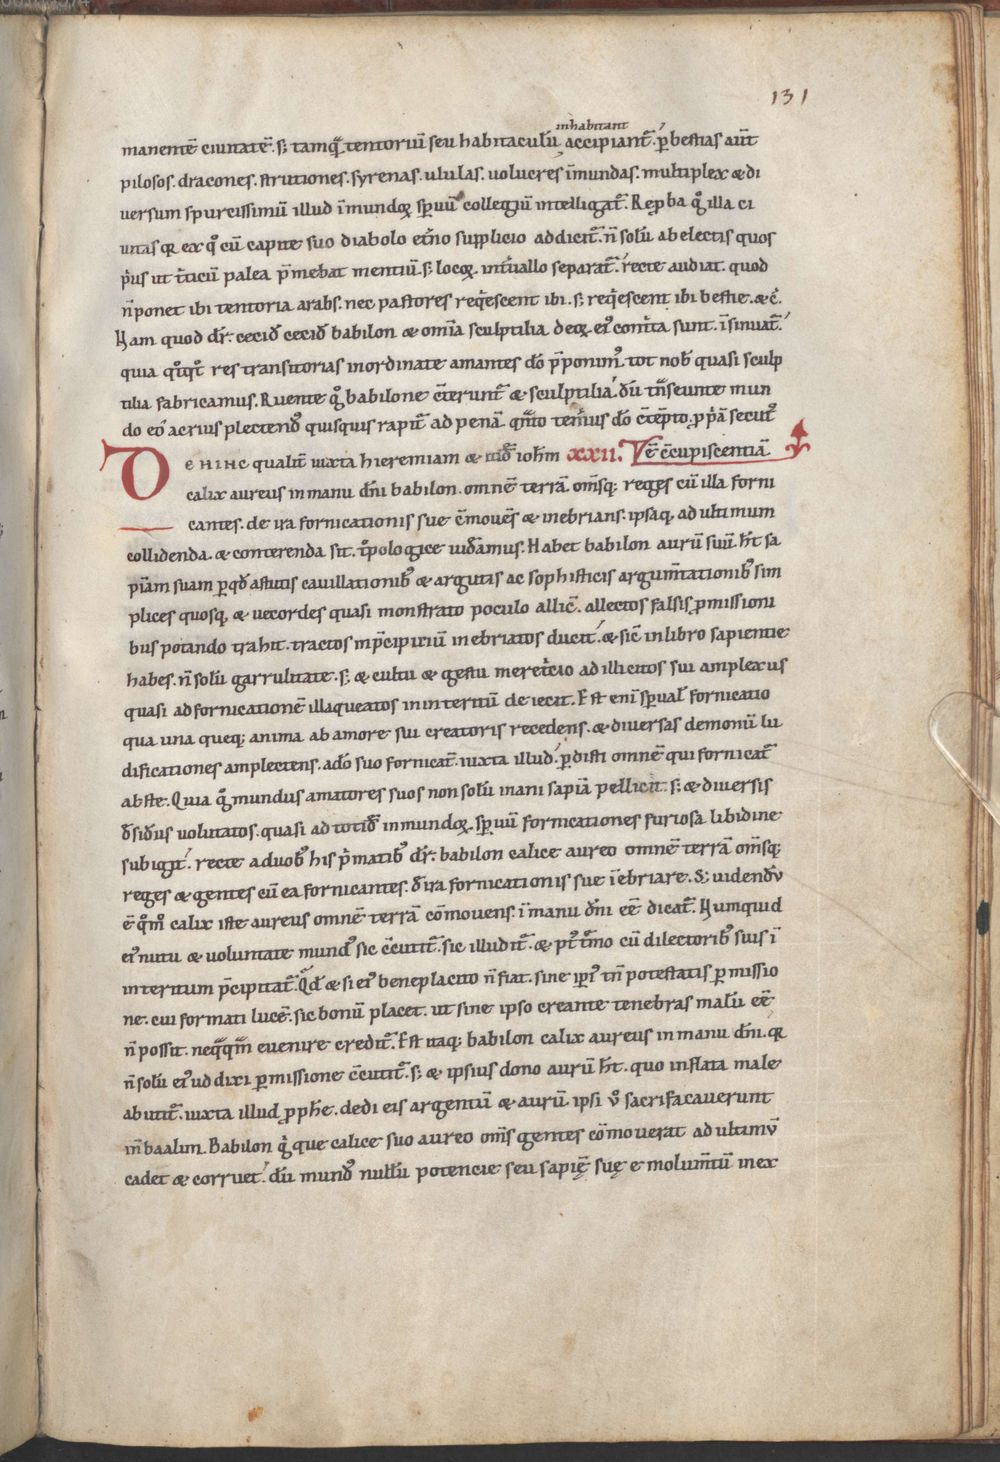 131
inhabitant
manentē ciuitatē. s; tamq̄ tentoriū seu habitaculū accipiant᷑. ꝑ bestias aūt
pilosos. dracones. strutiones. syrenas. ululas. uolucres īmundas. multiplex & di
uersum spurcissimū illud īmundoꝝ sp̄uū collegiū intelligat᷑. Reproba g̊ illa ci
uitas q̄ ex q̊ cū capite suo diabolo et̄no supplicio addicit᷑. n̄ solū ab electis quos
p̓us ut t̓ticū palea p̄mebat mentiū. s; locoꝝ int̓uallo separat᷑. recte audiat. quod
n̄ ponet ibi tentoria arabs. nec pastores req̓escent ibi. s; req̓escent ibi bestie. &c̄.
Nam quod dr̄. cecid̄ cecid̄ babilon & om̄ia sculptilia deoꝝ ei᷒ cont̓ta sunt. īsinuat᷑.
quia q̊tq̊t res transitorias inordinate amantes dō p̄ponim᷒. tot nob̄ quasi sculp
tilia fabricamus. Ruente g̊ babilone c̄terunt᷑ & sculptilia. dū tn̄seunte mun
do eo acrius plectend᷒ quisquis rapit᷑ ad penā qm̄to tem̓ius dō c̄tēpto ꝓp̓ā secut᷒
DE HINC qualit̄ iuxta hieremiam & ioh̄m XXII. Vē c̄cupiscentiā
calix aureus in manu dn̄i babilon. omnē terrā. om̄sq; reges cū illa forni
cantes. de ira fornicationis sue c̄mouēs & inebrians. ipsaq, ad ultimum
collidenda. & conterenda sit. t̓pologice uideamus. Habet babilon aurū suū. h̄t sa
piā suam ꝑ qd̄ astutis cauillationib᷒ & argutis ac sophisticis argum̄tationib᷒ sim
plices quosq, & uecordes quasi monstrato poculo allic̄. allectos falsis ꝓmissioni
bus potando trahit. tractos in p̄cipitiū inebriatos ducit. & sic̄ in libro sapientie
habes. n̄ solū garrulitate. s; & cultu & gestu meret̓cio ad illicitos sui amplexus
quasi ad fornicationē illaqueatos in interitū deiecit. Est eni sp̄ual᷒ fornicatio
qua una queq; anima ab amore sui creatoris recedens. & diuersas demonū lu
dificationes amplectens. a dō suo fornicat᷑. iuxta illud. ꝑdisti omnē qui fornicat᷑
abs te. Quia g̊ mundus amatores suos non solū inani sapiā pellicit. s; & diuersis
d̄sid̓iis uolutatos. quasi ad totid̄ inmundoꝝ. sp̄uū fornicationes furiosa libidine
subigit. recte a duob᷒ his p̓matib᷒ dr̄. babilon calice aureo omnē terrā om̄sq;
reges & gentes cū ea fornicantes. d̄ ira fornicationis sue īebriare. S; uidend᷒
ē q̊m̊ calix iste aureus omnē terrā cōmouens. ī manu dn̄i eē dicat᷑. Numquid
ei᷒ nutu & uoluntate mund᷒ sic c̄cutit᷑. sic illudit᷑. & cū dilectorib᷒ suis ī
interitum p̄cipitat᷑. Qd̄ & si ei᷒ beneplacito n̄ fiat. sine ip̄i᷒ tn̄ potestatis ꝑmissio
ne. cui formati lucē. sic bonū placet. ut sine ipso creante tenebras malū eē
n̄ possit. neq̄q̄m euenire credit᷑. Est itaq; babilon calix aureus in manu dn̄i. q̄
n̄ solū ei᷒ ud dixi ꝑmissione c̄cutit᷑. s; & ipsius dono aurū h̄t. quo inflata male
abutit᷑. iuxta illud ꝓph̄e. dedi eis argentū & aurū. ipsi ů sacrificauerunt
in baalim. Babilon g̊ que calice suo aureo om̄s gentes cōmouerat ad ultimū
cadet & corruet. dū mund᷒ nullū potencie seu sapię̄ suę emolum̄tū in ex